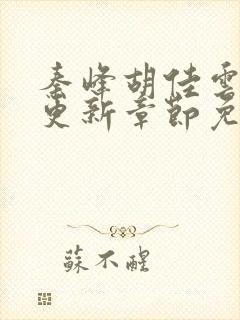 秦峰胡佳雲
更新章節免
蘇不醒